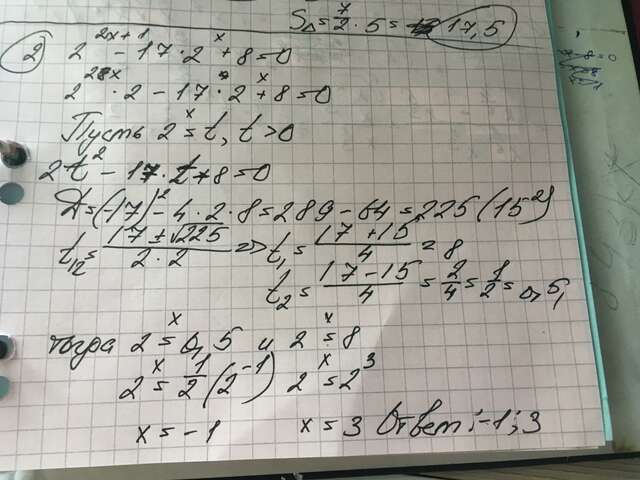 S△ = 7/2 · 5 = 17,5
2) 2^(2x+1) - 17 · 2^x + 8 = 0
2^(2x) · 2 - 17 · 2^x + 8 = 0
Пусть 2^x = t, t > 0
2t^2 - 17 · t + 8 = 0
Д = (-17)^2 - 4 · 2 · 8 = 289 - 64 = 225 (15^2)
t12 = (17 ± √225)/(2 · 2) => t1 = (17 + 15)/4 = 8
t2 = (17 - 15)/4 = 2/4 = 1/2 = 0,5,
тогда 2^x = 0,5 и 2^x = 8
2^x = 1/2 (2^-1) 2^x = 2^3
x = -1 x = 3 Ответ: -1; 3